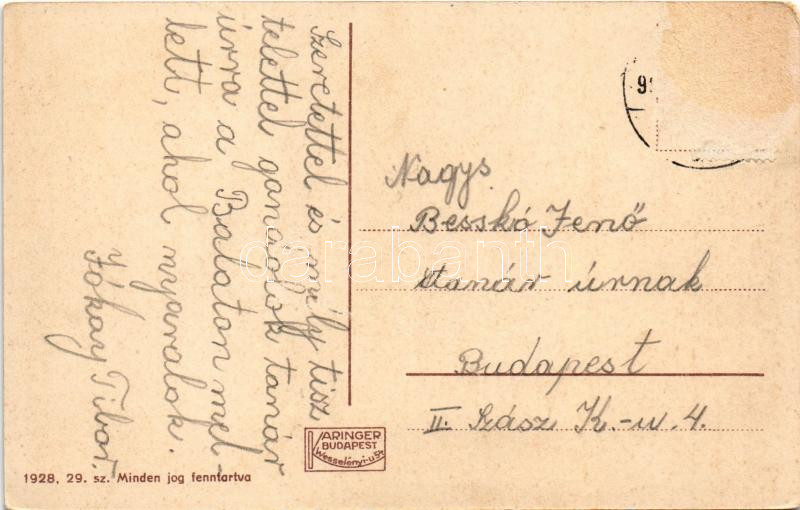 Szeretettel és mély tisz
telettel gondolok tanár
úrra a Balaton mel-
lett, ahol nyaralok.
Jókay Tibor.
Nagys
Besskó Jenő
tanár úrnak
Budapest
II. Szász K.-u. 4.
KARINGER
BUDAPEST
Wesselényi-u 54
1928, 29. sz. Minden jog fenntartva
darabanth